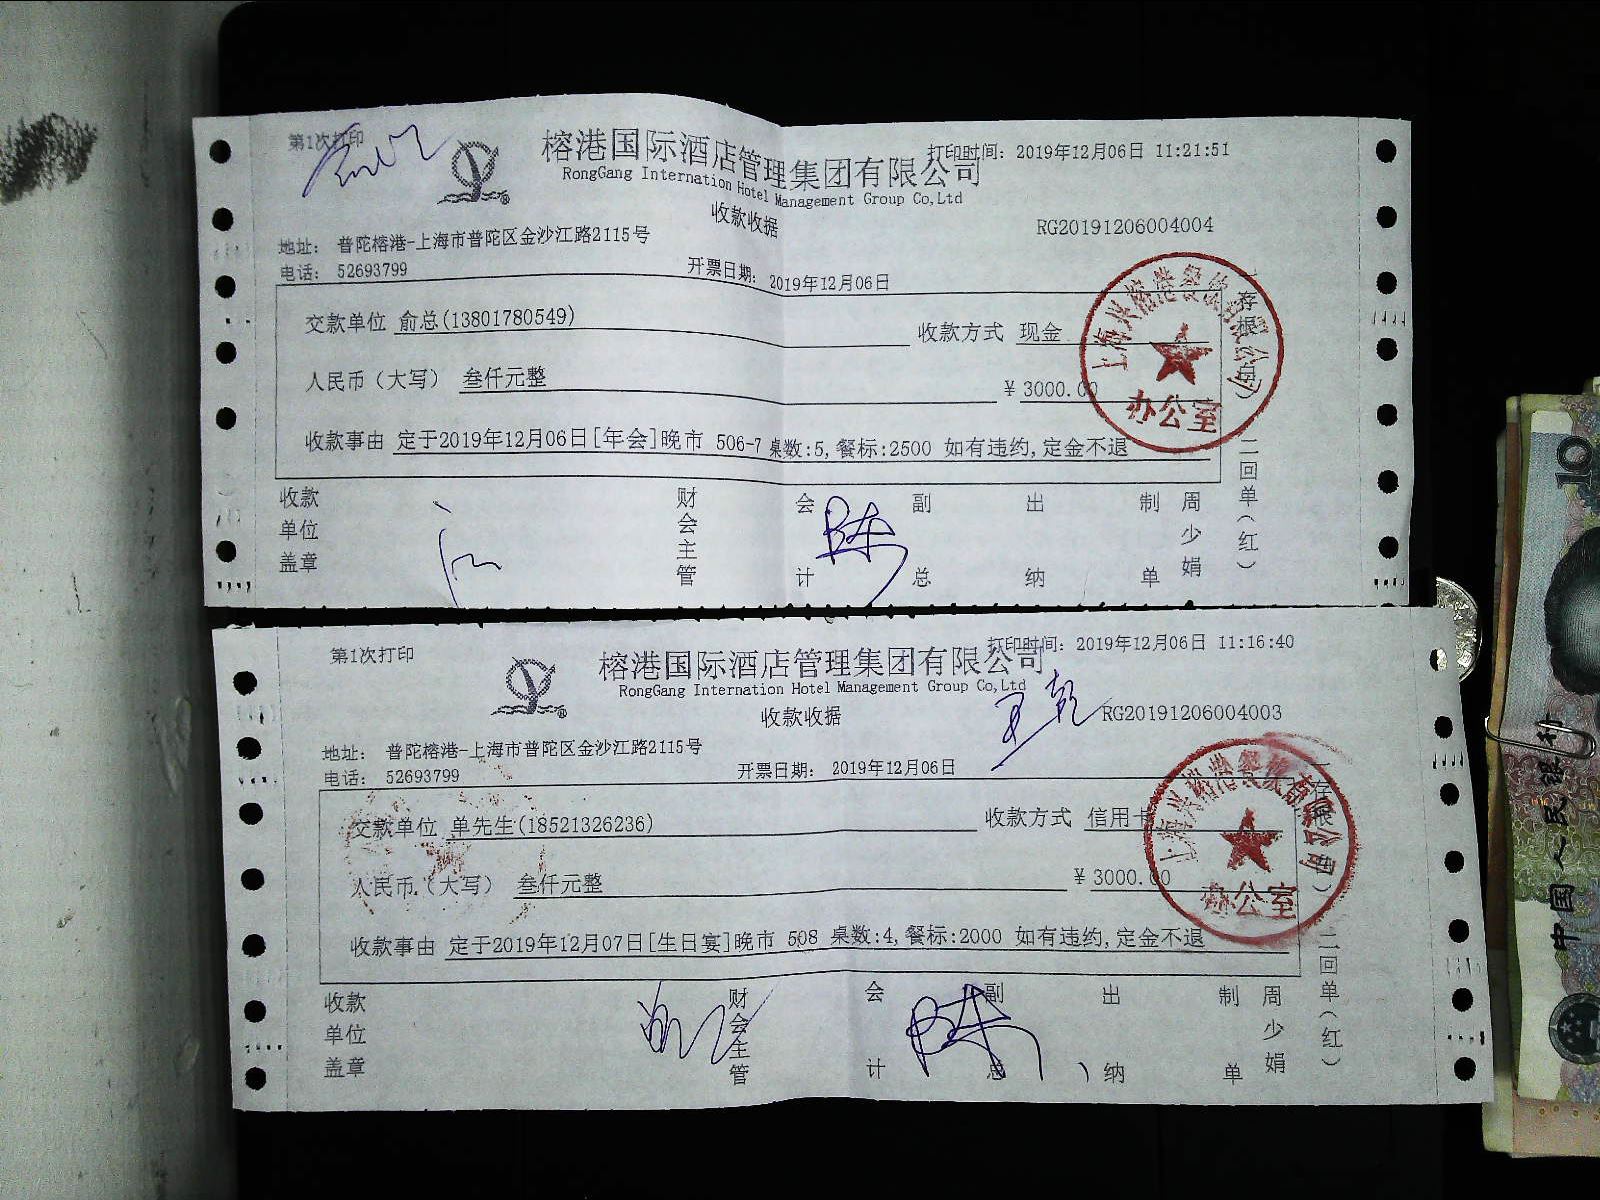 第1次打印
榕港国际酒店管理集团有限公司
打印时间: 2019年12月06日 11:21:51
RongGang Internation Hotel Management Group Co,Ltd
收款收据
RG20191206004004
地址: 普陀榕港-上海市普陀区金沙江路2115号
电话: 52693799
开票日期: 2019年12月06日
交款单位 俞总(13801780549)
收款方式 现金
人民币（大写） 叁仟元整
¥ 3000.00
收款事由 定于2019年12月06日[年会]晚市 506-7 桌数:5,餐标:2500 如有违约,定金不退
收款单位盖章
财会主管
会计
陈
副总
出纳
制单
周少娟
二回单(红)
办公室
第1次打印
榕港国际酒店管理集团有限公司
打印时间: 2019年12月06日 11:16:40
RongGang Internation Hotel Management Group Co,Ltd
收款收据
RG20191206004003
地址: 普陀榕港-上海市普陀区金沙江路2115号
电话: 52693799
开票日期: 2019年12月06日
交款单位 单先生(18521326236)
收款方式 信用卡
人民币（大写） 叁仟元整
¥ 3000.00
收款事由 定于2019年12月07日[生日宴]晚市 508 桌数:4,餐标:2000 如有违约,定金不退
收款单位盖章
财会主管
会计
陈
副总
出纳
制单
周少娟
二回单(红)
办公室
中国人民银行